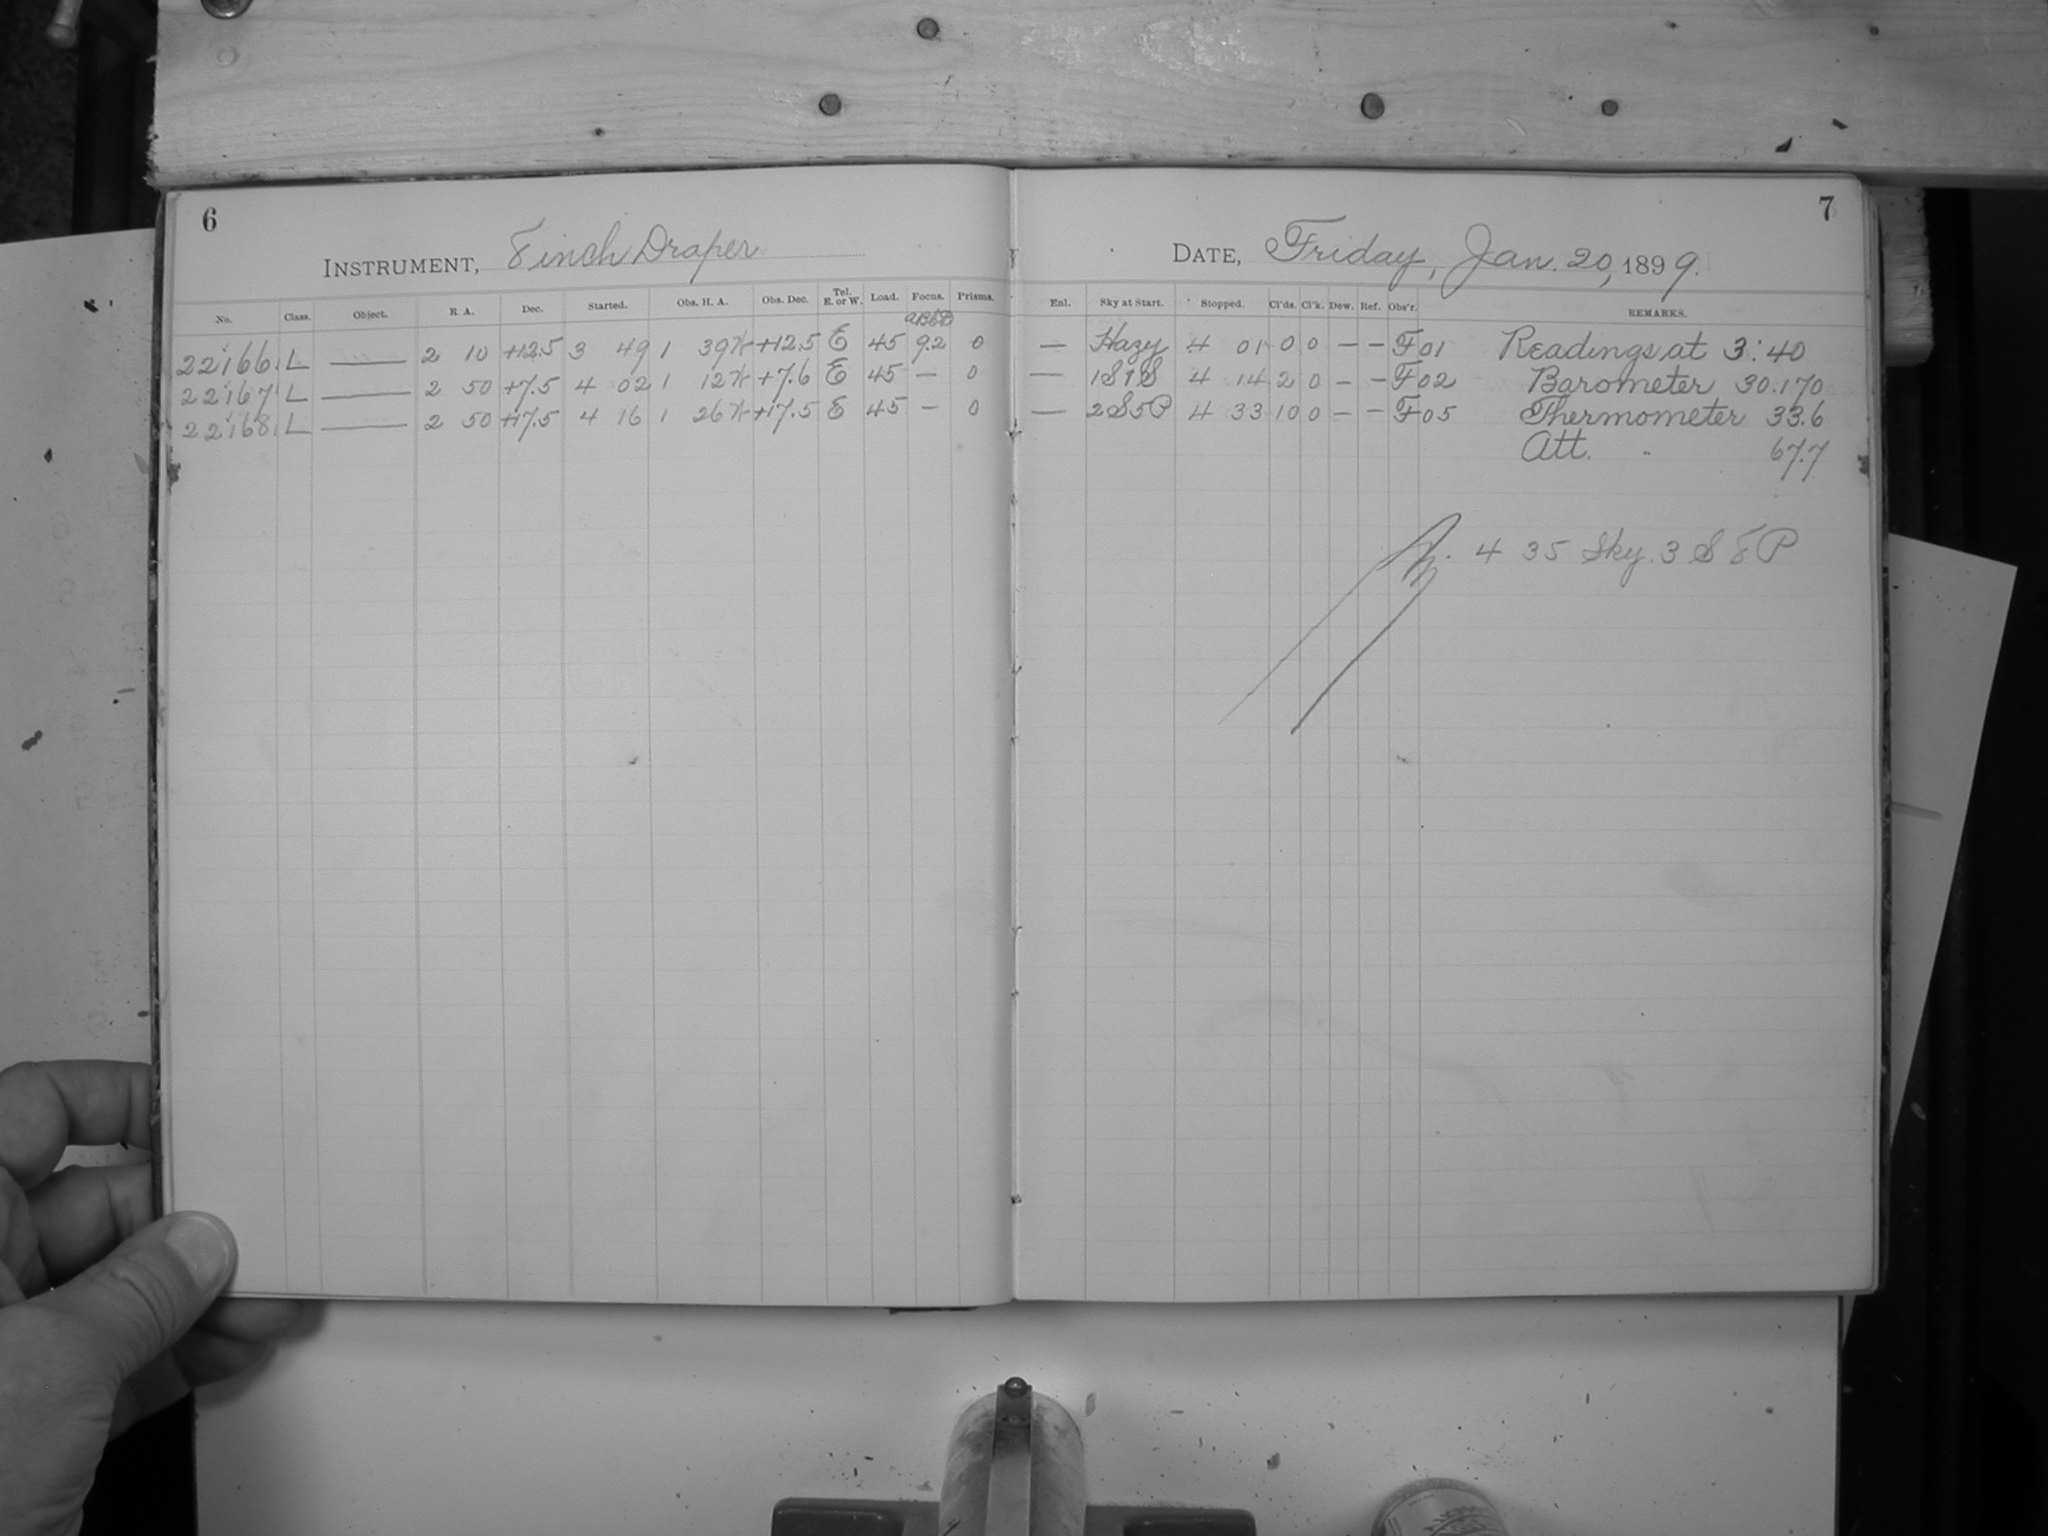 6
INSTRUMENT, 8 inch Draper.
No. Class. Object. R. A. Dec. Started. Obs. H. A. Obs. Dec. Tel. E. or W. Load. Focus. Prisms.
22166 L — 2 10 +12.5 3 49 1 39 +12.5 E 45 9.2 0
22167 L — 2 50 +7.5 4 02 1 12 +7.6 E 45 — 0
22168 L — 2 50 +17.5 4 16 1 26 +17.5 E 45 — 0
7
DATE, Friday, Jan. 20, 1899.
Enl. Sky at Start. Stopped. Cl'ds. Cl'k. Dew. Ref. Obs'r. REMARKS.
— Hazy 4 01 0 0 — — F 01 Readings at 3:40
— 1S1S 4 14 2 0 — — F 02 Barometer 30.170
— 2S5P 4 33 10 0 — — F 05 Thermometer 33.6
Att. " 67.7
4 35 Sky. 3 S 8 P